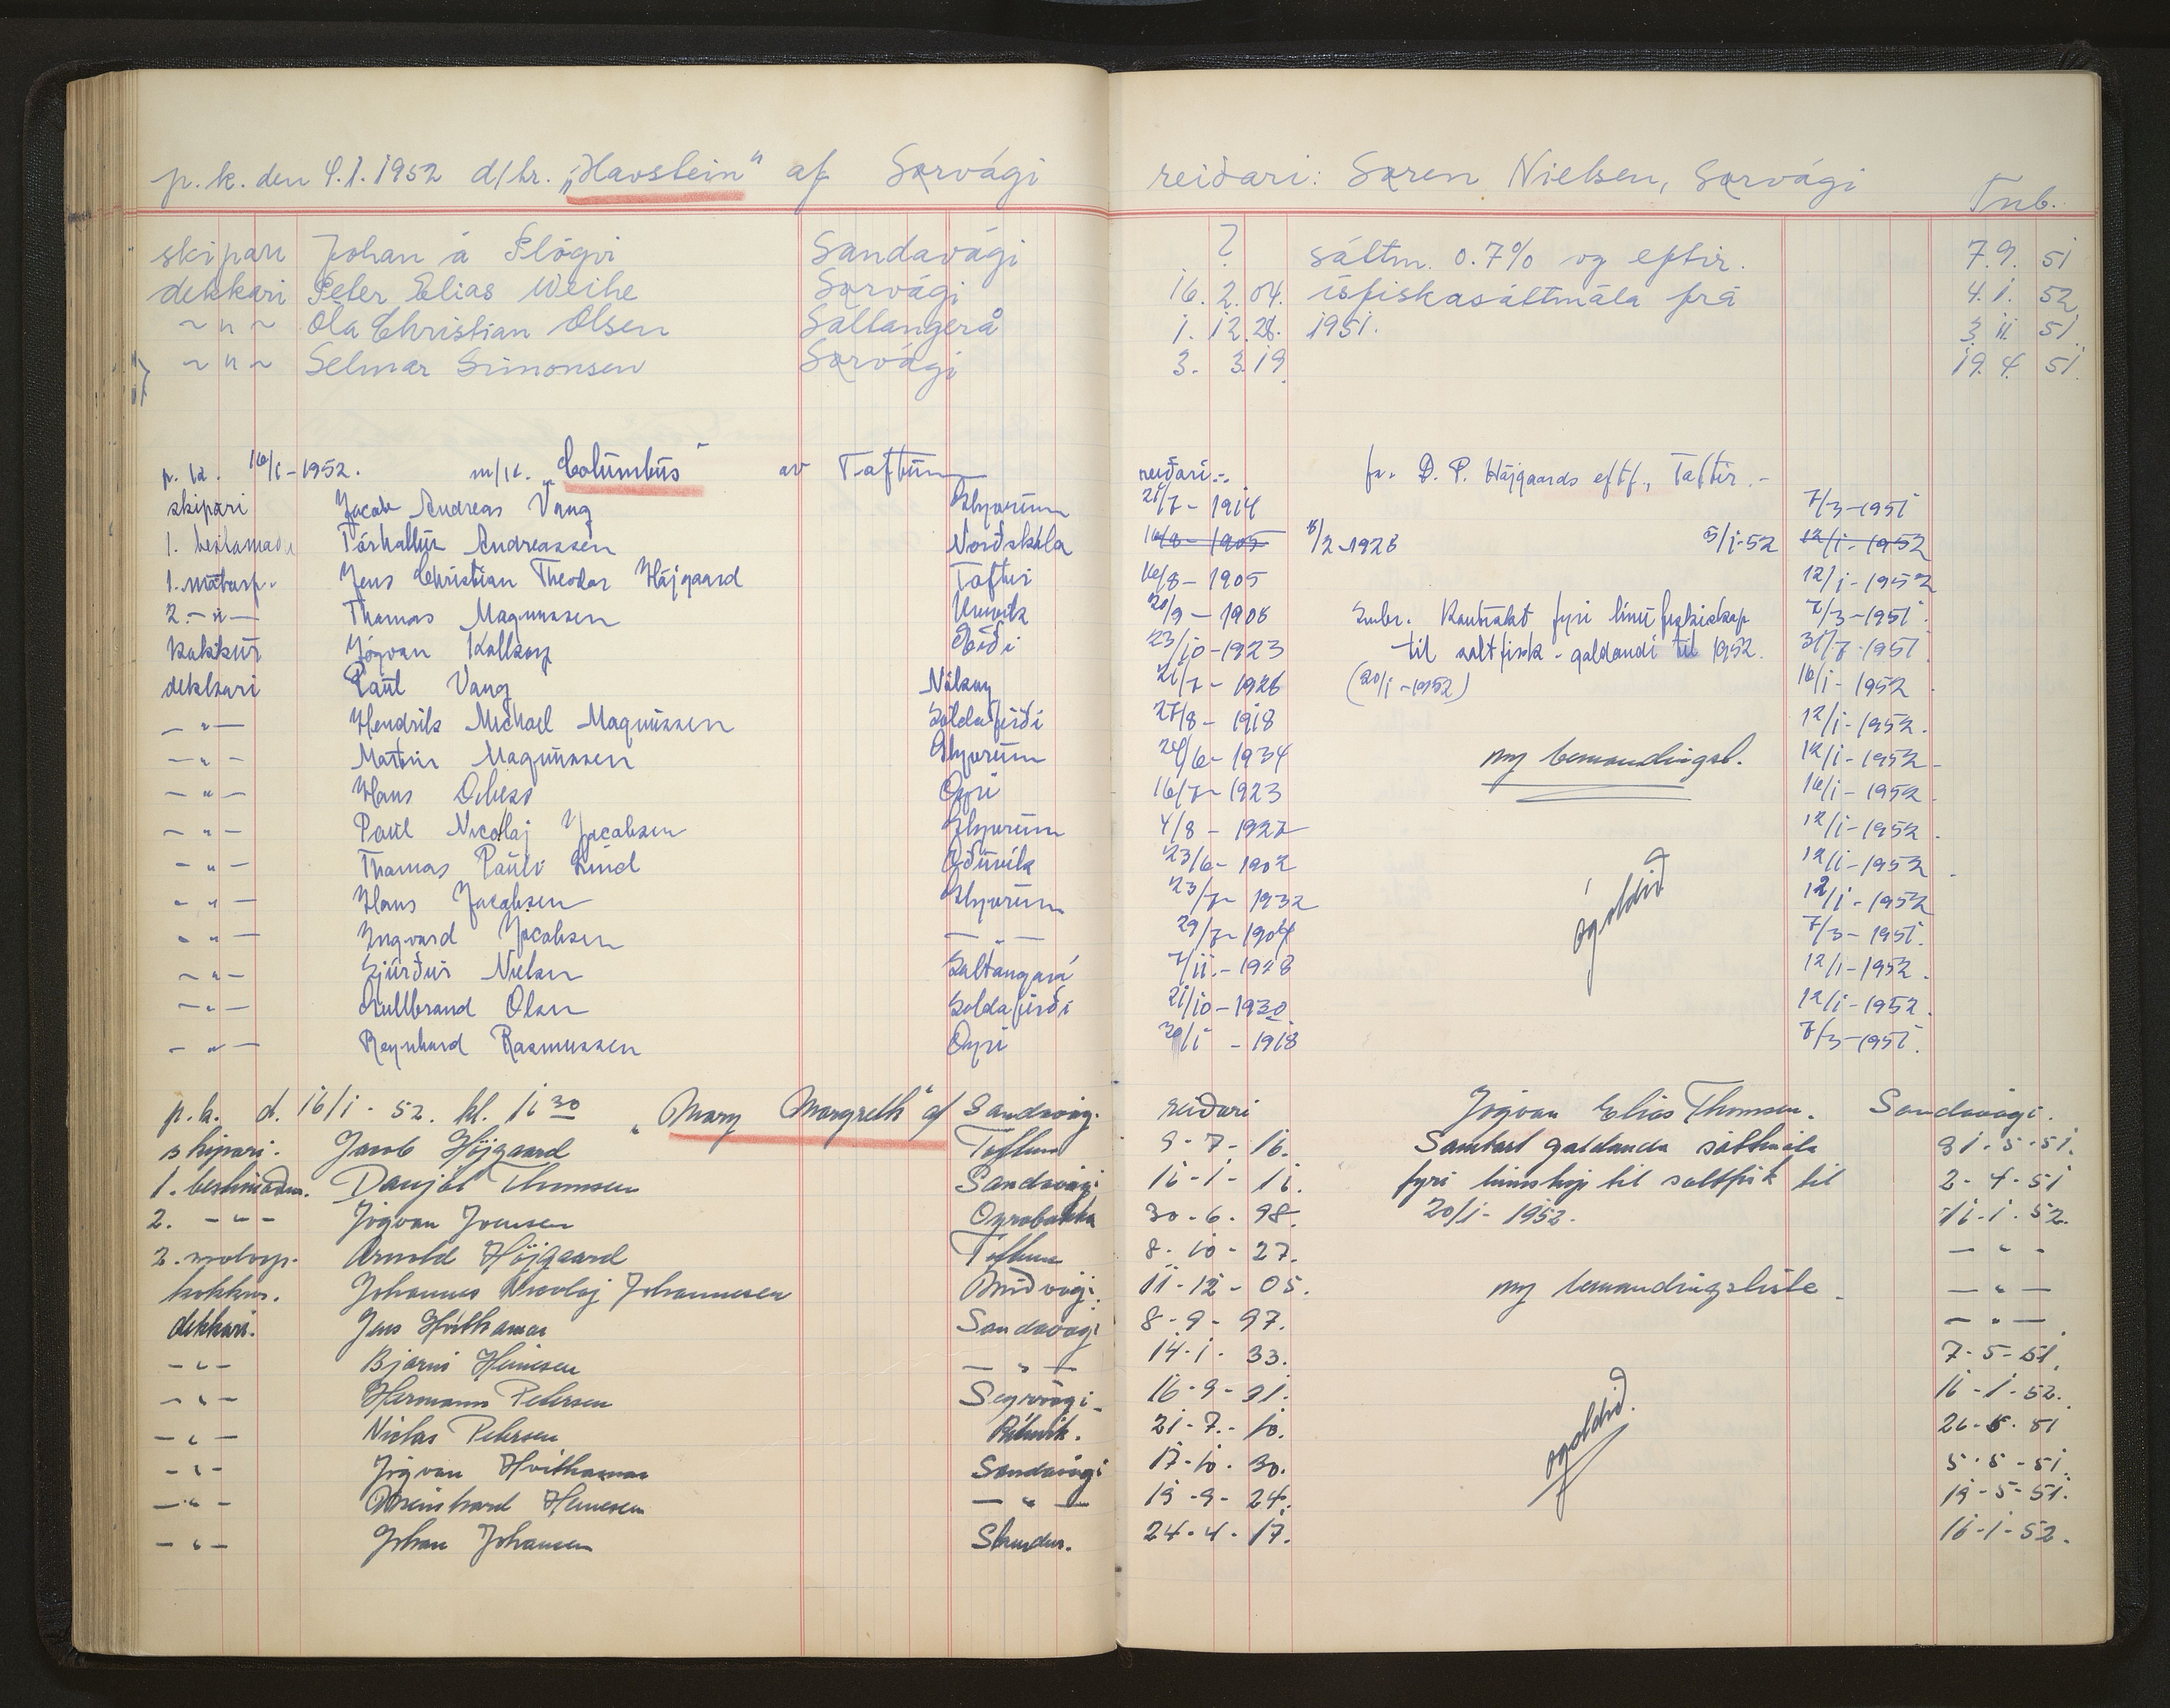 p.k. den 4.1.1952 d/tr. „Havstein" af Sørvági reiðari: Søren Nielsen, Sørvági Tnb.
skipari Johan á Plógvi Sandavági ? sáttm. 0.7% og eftir. 7.9. 51
dekkari Peter Elias Weihe Sørvági 16. 2. 04. ísfiskasáttmála frá 4.1. 52
~ " ~ Óla Christian Olsen Saltangerå 1. 12. 28. 1951. 3. 11. 51.
~ " ~ Selmar Simonsen Sørvági 3. 3. 19. 19. 4. 51.
p. k. 16/1-1952. m/k. „Columbus" av Toftum reiðari:- fa. D. P. Højgaards eftf., Toftir.-
skipari Jacob Andreas Vang Glyvrum 21/7-1914 7/3-1951
1. bestamað Tórhallur Andreassen Norðskála 16/8-1905 8/2-1928 5/1-52 12/1-1952
1. motorp. Jens Christian Theodor Højgaard Toftir 16/8-1905 12/1-1952
2. -"- Thomas Magnussen 20/9-1908 Smbr. Kontrakt fyri línufiskiskap 7/3-1951.
kokkur Jógvan Kallsoy Eiði 23/10-1923 til saltfisk-galdandi til 1952. 31/7-1951
dekkari Paul Vang Nólsoy 21/7-1926 (20/1-1952) 16/1-1952.
-"- Hendrik Michael Magnussen Soldafirði 27/8-1918 12/1-1952.
-"- Martin Magnussen Glyvrum 24/6-1934 ny bemandingsl. 12/1-1952-
-"- Hans Debess Oyri 16/7-1923 16/1-1952.
-"- Paul Nicolaj Jacobsen Glyvrum 4/8-1927 12/1-1952.
-"- Thomas Pauli Lund Øðuvík 23/6-1902 12/1-1952.
-"- Hans Jacobsen Glyvrum 23/7-1932 ógoldið 12/1-1952
-"- Ingvard Jacobsen -"- 29/7-1904 7/3-1951.
-"- Sjúrður Nielsen Saltangará 7/11.-1928 12/1-1952.
-"- Olsen Soldafirði 21/10-1930 12/1-1952.
-"- Reynhard Rasmussen Oyri 30/1-1918 7/3-1951.
p.k. d. 16/1-52. kl. 11 30 „Mary Margreth" af Sandavág. reiðari Jógvan Elias Thomsen. Sandavági.
skipari. Jacob Højgaard Toftum 9-7-16. Samtart galdanda sáttmála 31-5-51.
1. bestimaður. Danjal Thomsen Sandavági 16-1-11. fyri línuskip til saltfisk til 2-4-51
2. -"- Jógvan Joensen Oyrabakka 30-6-98. 20/1-1952. 11-1-52.
2. motorp. Arnold Højgaard Toftum 8-10-27. -"-
kokkur. Johannes Nicolaj Johannesen Miðvági. 11-12-05. ny bemandingsliste. -"-
dekkari. Jens Hvithamar Sandavági 8-9-97. -"-
-"- Bjarni Heinesen -"- 14-1-33. 7-5-51.
-"- Hermann Petersen Seyrvági- 16-9-31. 16-1-52.
-"- Niclas Petersen 21-7-10. ógoldið. 26-5-51
-"- Jógvan Hvithamar Sandavági 17-10-30. 5-5-51.
-"- Meinhard Heinesen -"- 19-9-24. 19-5-51.
-"- Johan Johansen 24-4-17. 16-1-52.